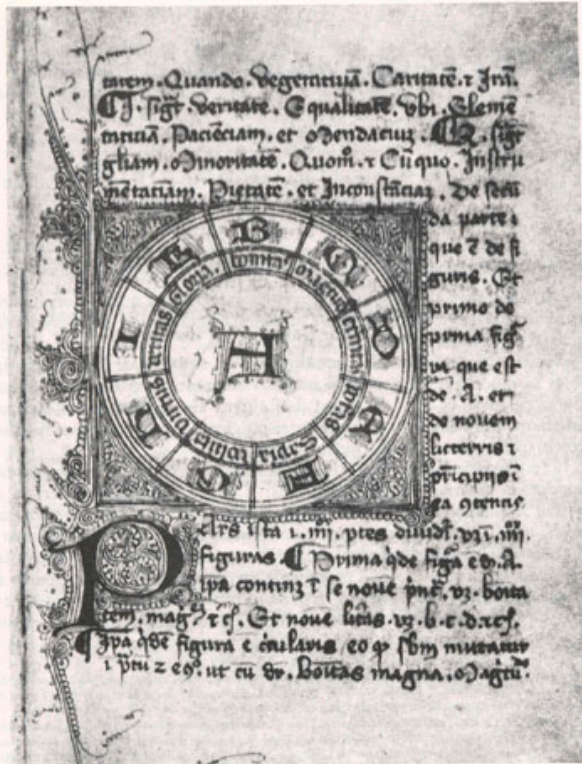 tatem. Quando. vegetatiuā. Caritatē. ⁊ Irā.
I. sigt. veritatē. Equalitatē. vbi. Elemē
tatiuā. Pacienciam. et Mendaciuz. K. sigt
gliam. Minoritatē. Quom̄. ⁊ Cū quo. Instru
mētatiuam. Pietatē. et Inconstāciaz. De secū
da parte i
que ē de fi
guris. Et
primo de
prima fiḡ
ra que est
de .A. et
de nouem
litterris ⁊
principijs ī
ea ꝯtentis
B C D E F G H I K
bonitas magnitudo eternitas potestas Sapiē volūtas virtus veritas gloria
A
Pars ista ī .iiij. ptes diuidit̄. vz ī .iiij.
figuras. Prima q̇de figā ē d̄. A.
ipa continz ī se noue pnc̄. vz. boita
tem. mag̃ ⁊ cͭ. Et noue litās vz. b. c. d. ⁊ cͭ.
Ipa q̇dē figura ē ciicularis eo ꝙ sbm mutatur
i p̄tu ⁊ eꝯ. ut cū dr̄. boitas magna. Magtu.